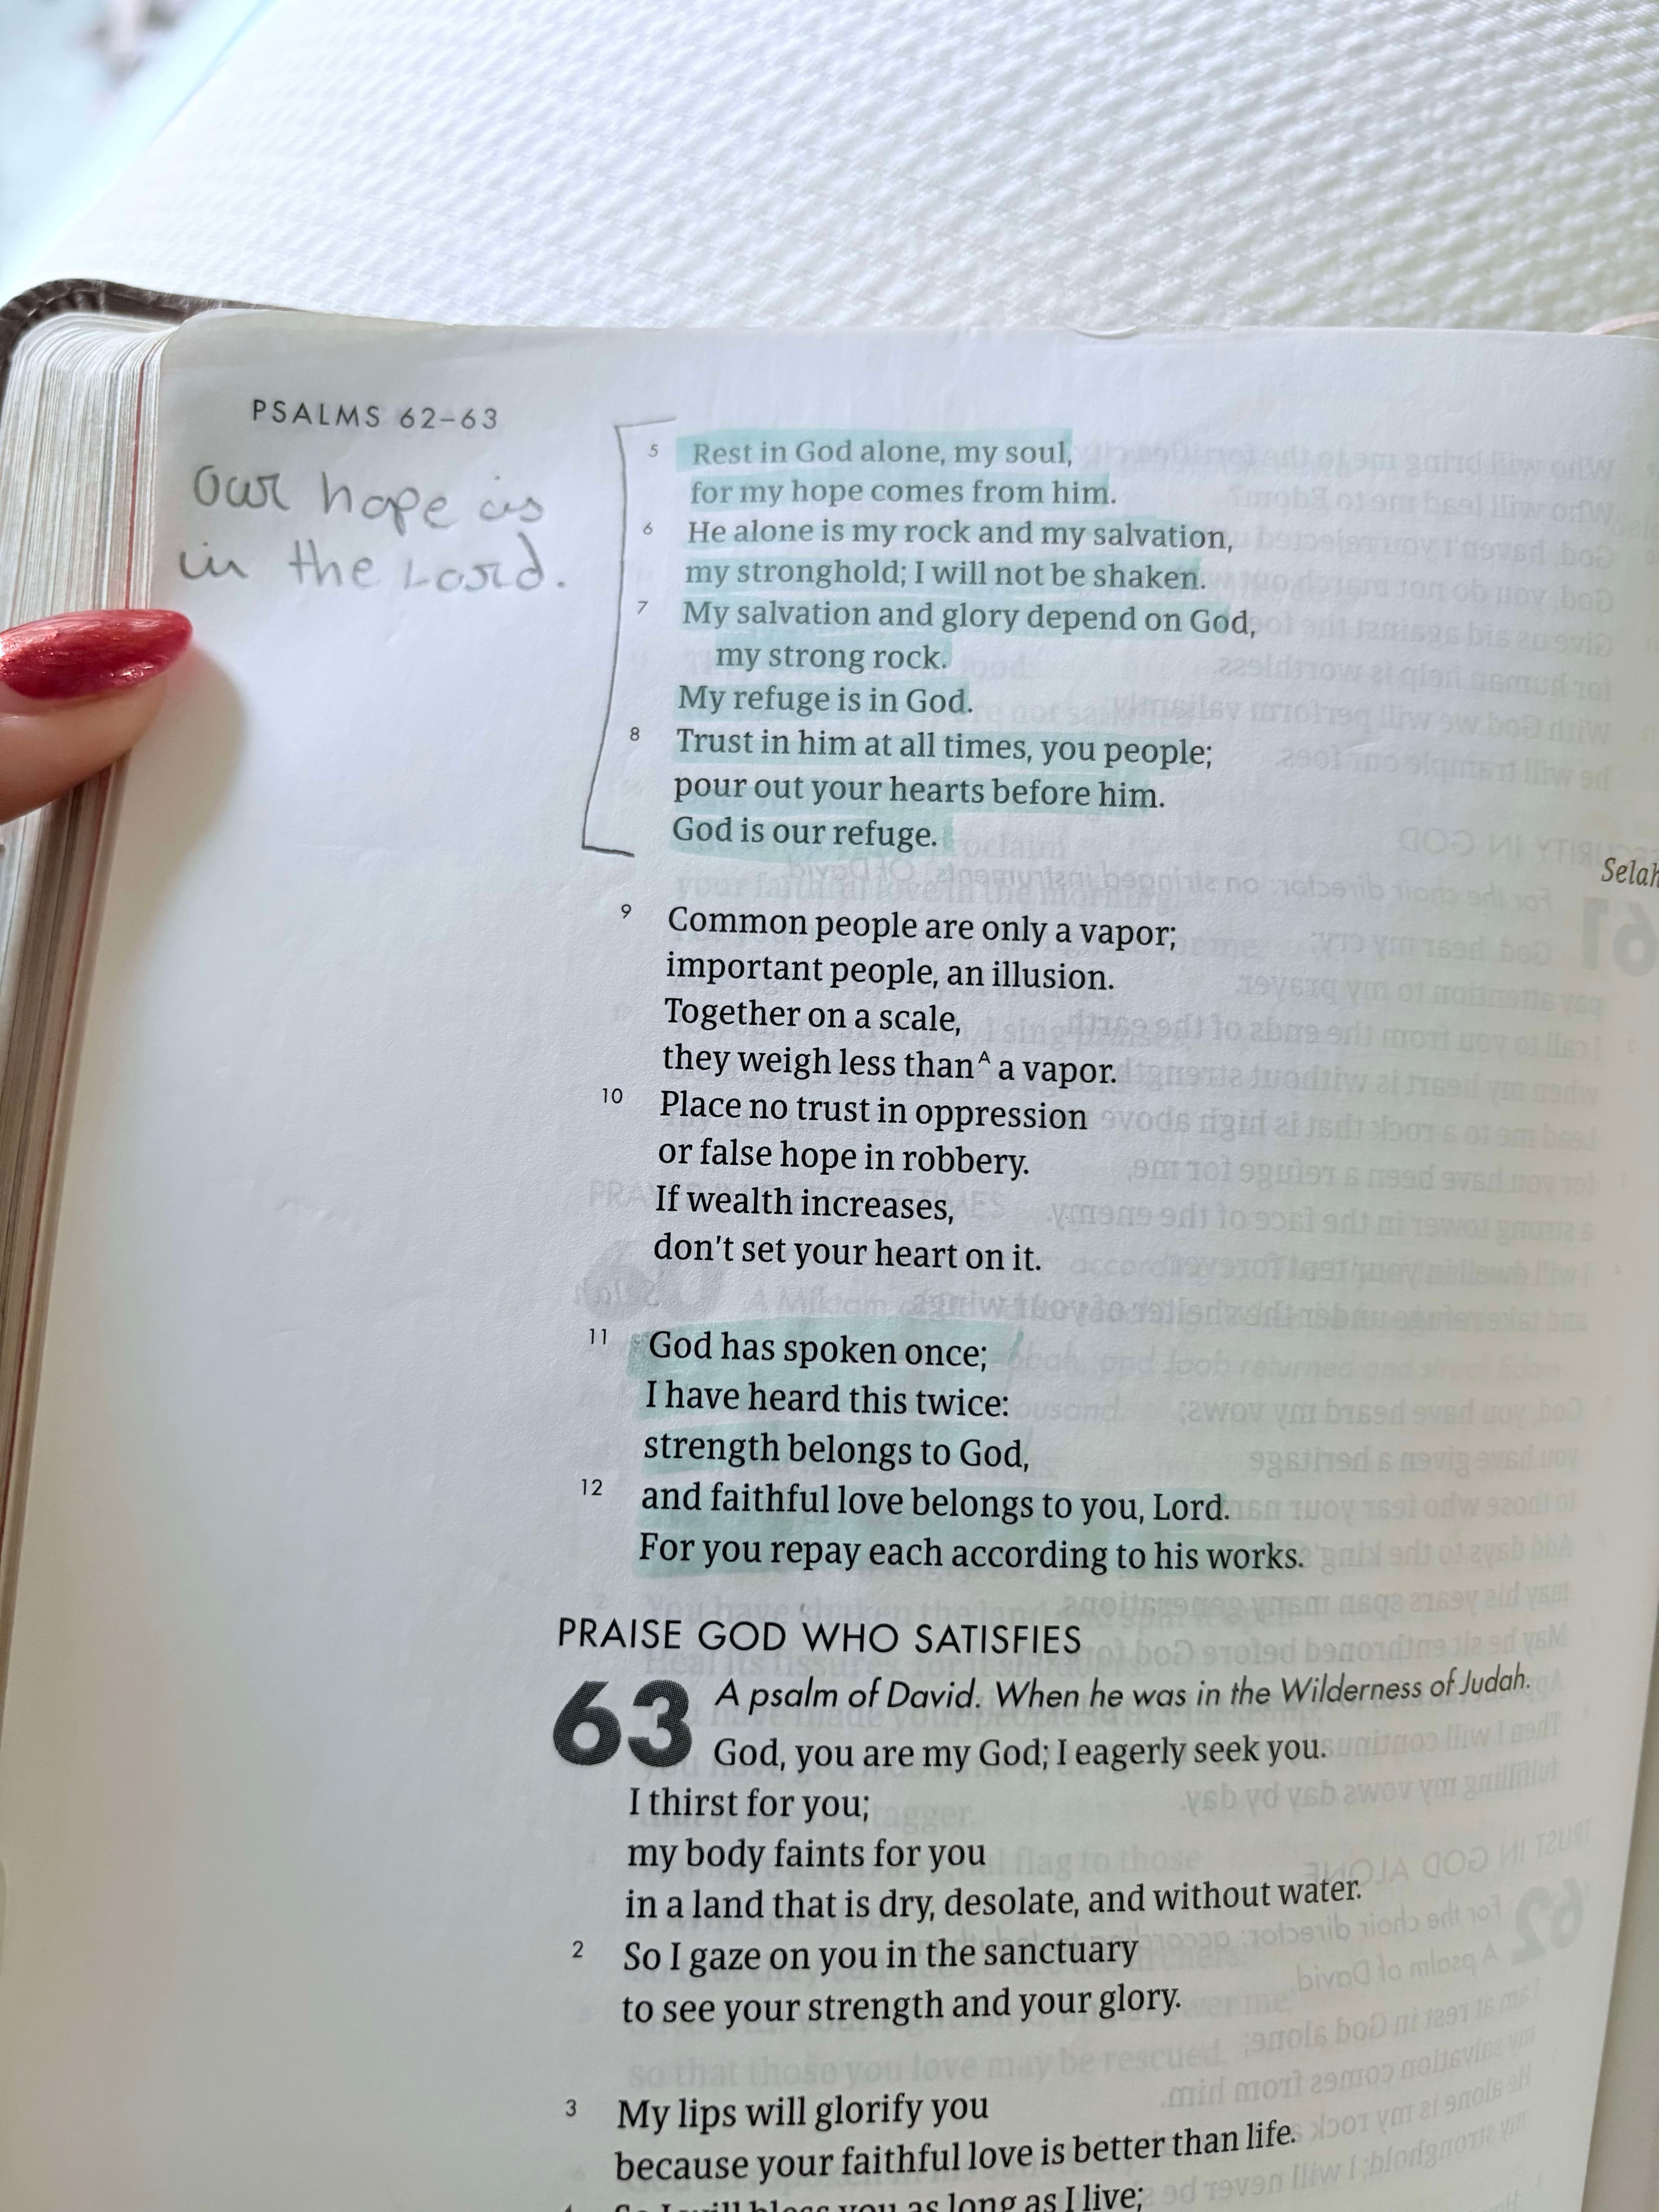 PSALMS 62–63
our hope is
in the Lord.
5 Rest in God alone, my soul,
for my hope comes from him.
6 He alone is my rock and my salvation,
my stronghold; I will not be shaken.
7 My salvation and glory depend on God,
my strong rock.
My refuge is in God.
8 Trust in him at all times, you people;
pour out your hearts before him.
God is our refuge.
Selah
9 Common people are only a vapor;
important people, an illusion.
Together on a scale,
they weigh less than^A a vapor.
10 Place no trust in oppression
or false hope in robbery.
If wealth increases,
don't set your heart on it.
11 God has spoken once;
I have heard this twice:
strength belongs to God,
12 and faithful love belongs to you, Lord.
For you repay each according to his works.
PRAISE GOD WHO SATISFIES
63 A psalm of David. When he was in the Wilderness of Judah.
God, you are my God; I eagerly seek you.
I thirst for you;
my body faints for you
in a land that is dry, desolate, and without water.
2 So I gaze on you in the sanctuary
to see your strength and your glory.
3 My lips will glorify you
because your faithful love is better than life.
4 So I will bless you as long as I live;